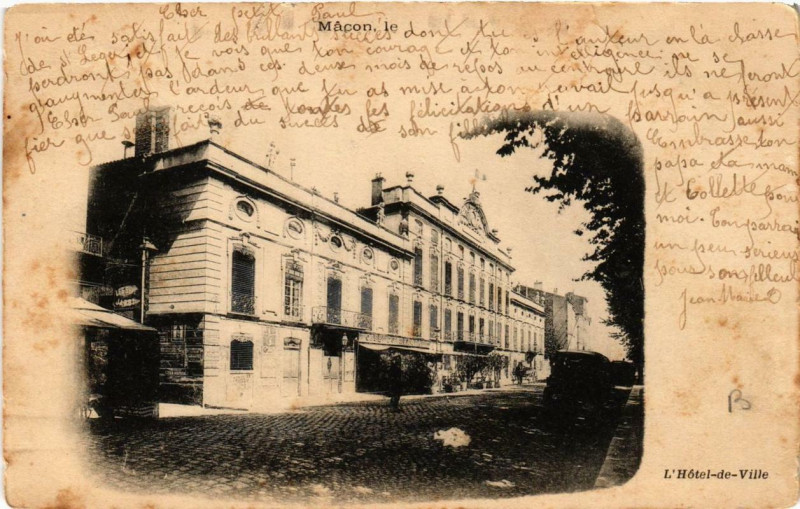 Cher petit Paul
Mâcon, le
J'ai été satisfait des brillants succès dont tu es l'auteur en la classe
de St Leger je vois que ton courage et ta intelligence ne se
perdront pas dans ces deux mois de repos au contraire ils ne feront
qu'augmenter l'ardeur que tu as mise à ton travail jusqu'à présent
Cher Paul reçois toutes les félicitations d'un parrain aussi
fier que du succès de son filleul
Embrasse ton
papa ta mam
et Collette pour
moi. Ton parrain
un peu sérieux
pour son filleul
Jean Marie
B
L'Hôtel-de-Ville